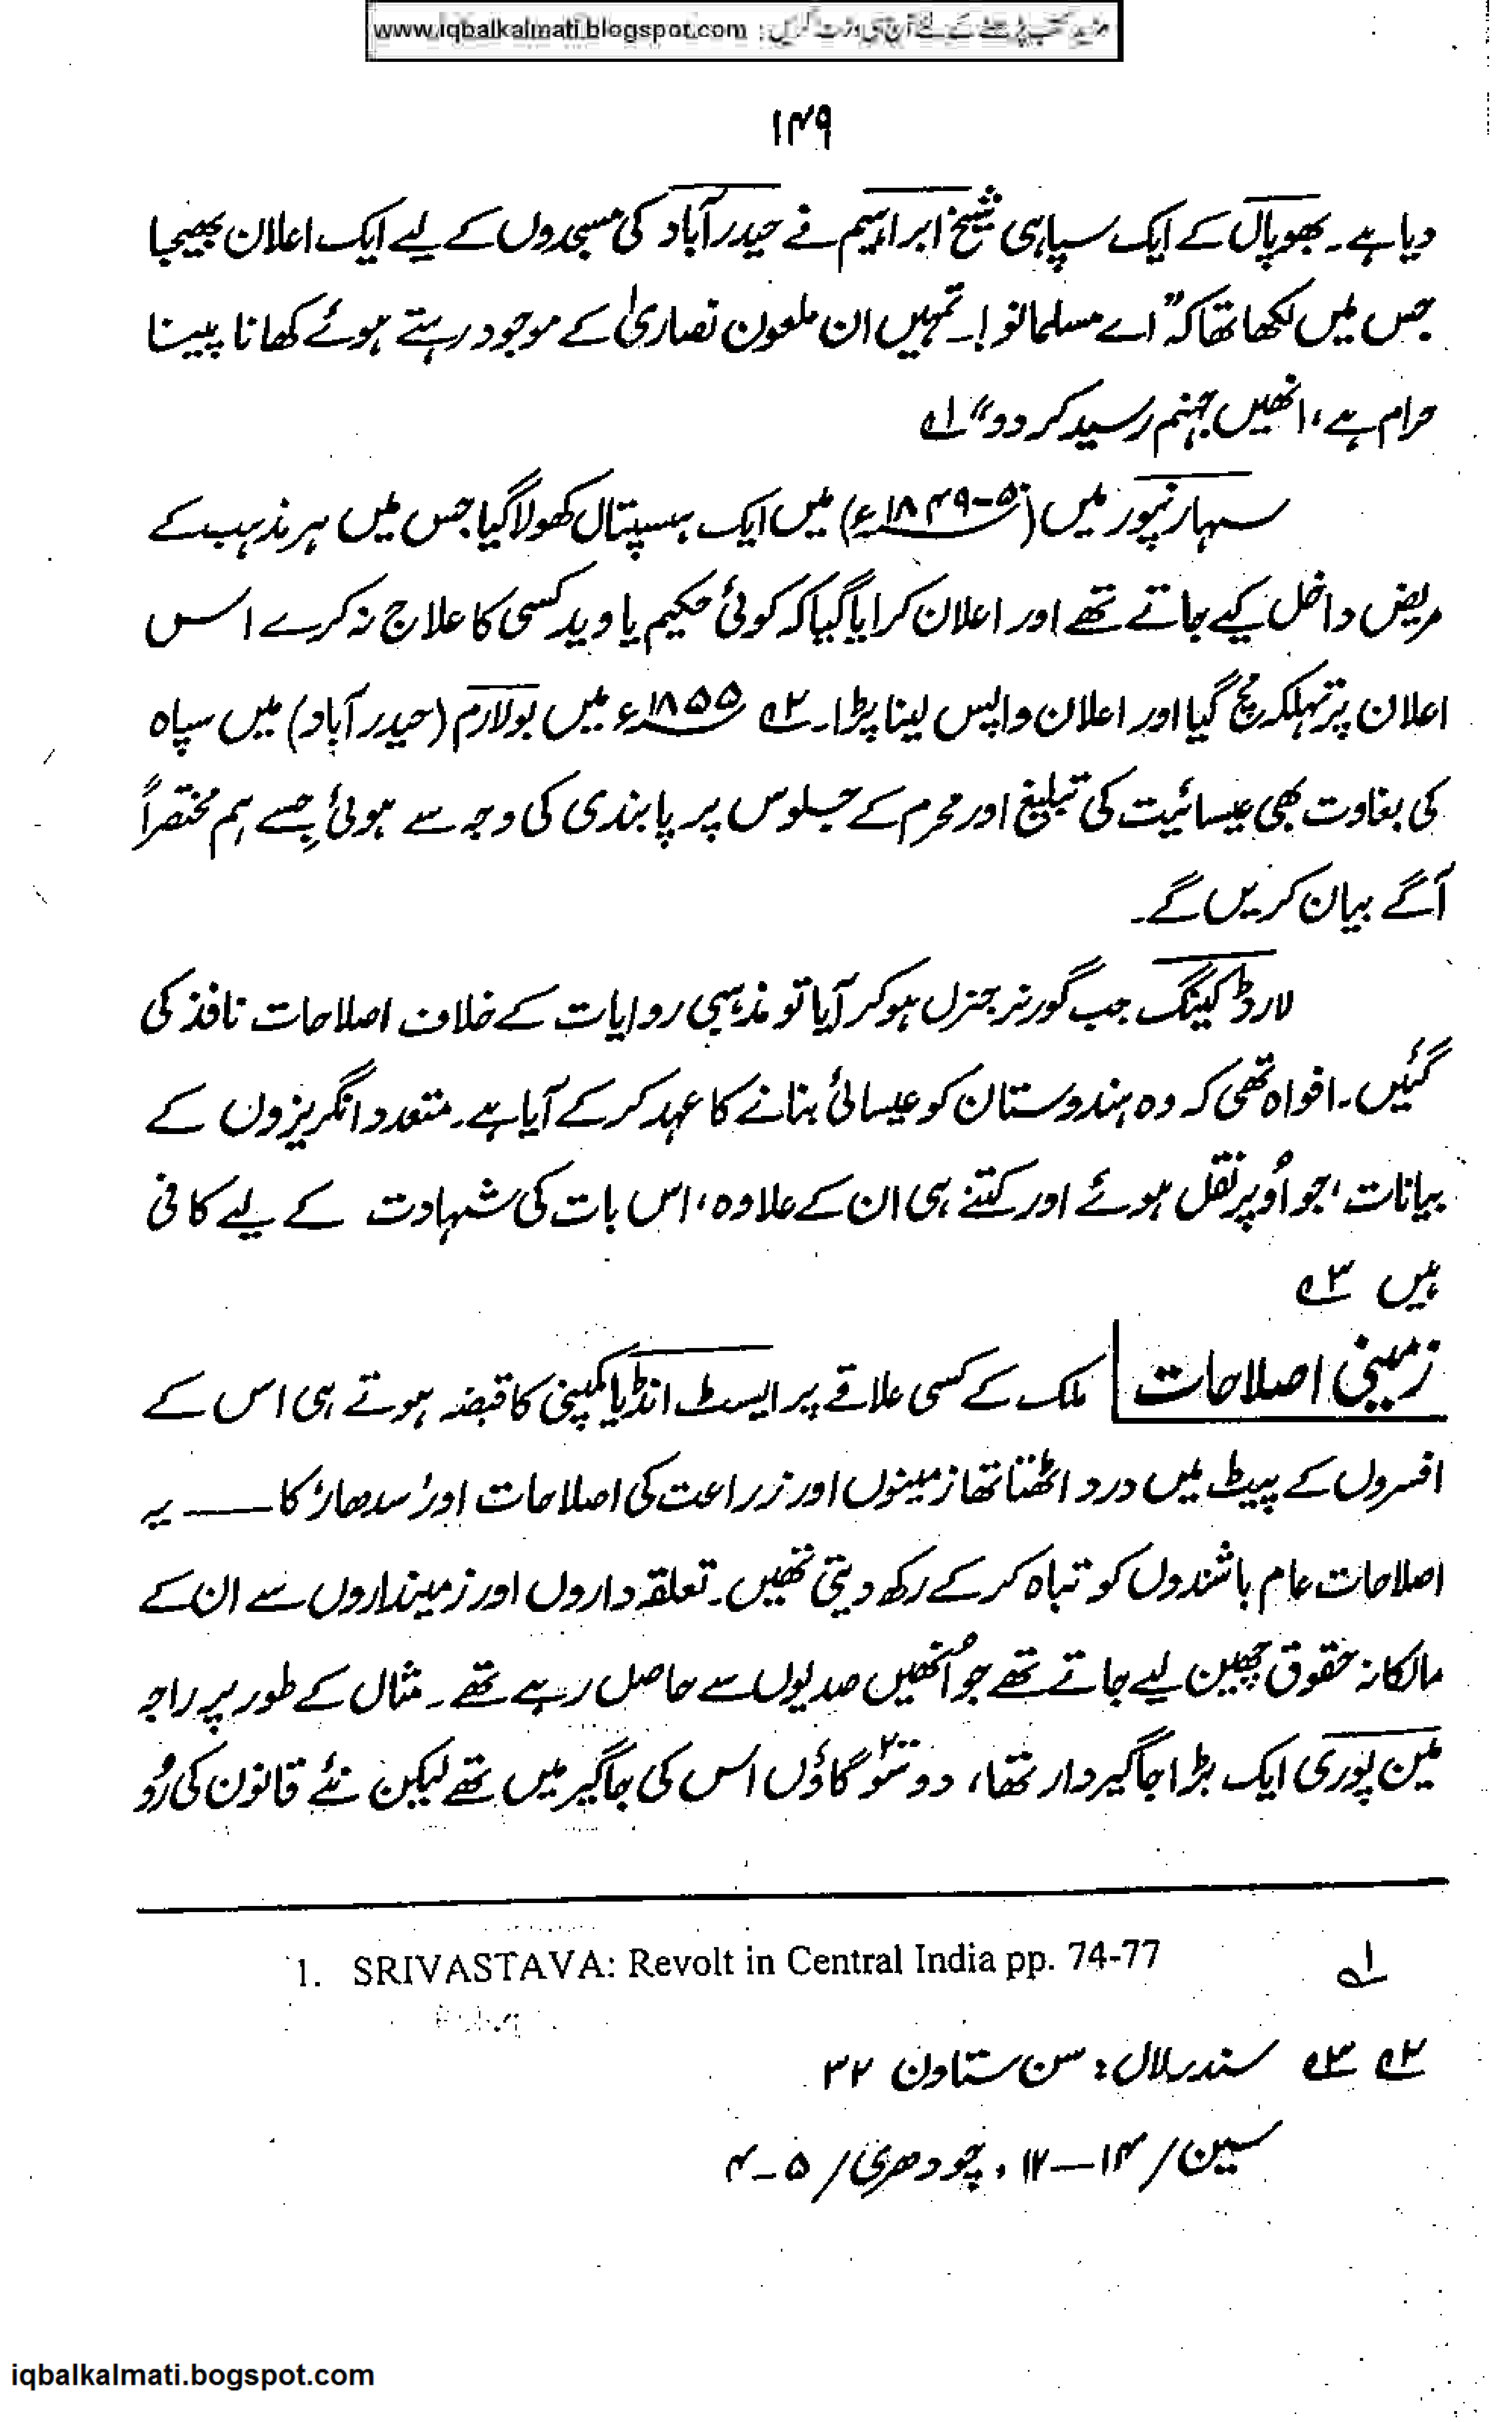 www.iqbalkalmati.blogspot.com : مزید کتب پڑھنے کے لئے آج ہی وزٹ کریں
۱۴۹
دیا ہے۔ بھوپال کے ایک سپاہی شیخ ابراہیم نے حیدرآباد کی مسجدوں کے لیے ایک اعلان بھیجا
جس میں لکھا تھا کہ ”اے مسلمانو!۔ تمہیں ان ملعون نصاریٰ کے موجود رہتے ہوئے کھانا پینا
حرام ہے، انھیں جہنم رسید کر دو“ ۱ـه
سہارنپور میں (۵۰-۱۸۴۹ء) میں ایک ہسپتال کھولا گیا جس میں ہر مذہب کے
مریض داخل کیے جاتے تھے اور اعلان کرایا گیا کہ کوئی حکیم یا وید کسی کا علاج نہ کرے اس
اعلان پر تہلکہ مچ گیا اور اعلان واپس لینا پڑا۔ ۲ـه ۱۸۵۵ء میں بولارم (حیدرآباد) میں سپاہ
کی بغاوت بھی عیسائیت کی تبلیغ اور محرم کے جلوس پر پابندی کی وجہ سے ہوئی جِسے ہم مختصراً
آگے بیان کریں گے۔
لارڈ کیننگ جب گورنر جنرل ہو کر آیا تو مذہبی روایات کے خلاف اصلاحات نافذ کی
گئیں۔ افواہ تھی کہ وہ ہندوستان کو عیسائی بنانے کا عہد کر کے آیا ہے۔ متعدد انگریزوں کے
بیانات، جو اُوپر نقل ہوئے اور کتنے ہی ان کے علاوہ، اس بات کی شہادت کے لیے کافی
ہیں ۳ـه
زمینی اصلاحات ملک کے کسی علاقے پر ایسٹ انڈیا کمپنی کا قبضہ ہوتے ہی اس کے
افسروں کے پیٹ میں درد اٹھتا تھا زمینوں اور زراعت کی اصلاحات اور ’سدھار‘ کا —— یہ
اصلاحات عام باشندوں کو تباہ کر کے رکھ دیتی تھیں۔ تعلقہ داروں اور زمینداروں سے ان کے
مالکانہ حقوق چھین لیے جاتے تھے جو اُنھیں صدیوں سے حاصل رہے تھے۔ مثال کے طور پر راجہ
مین پوری ایک بڑا جاگیردار تھا، دو سَو ۲۰۰ گاؤں اس کی جاگیر میں تھے لیکن نئے قانون کی رُو
۱ـه 1. SRIVASTAVA: Revolt in Central India pp. 74-77
۲ـه ۳ـه سندرلال: سن ستاون ۳۲
سین/ ۱۴—۱۲، چودھری/ ۵-۴
iqbalkalmati.bogspot.com